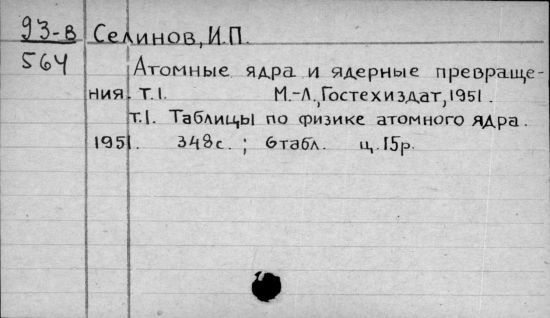 93-В Селинов, И.П.
564 Атомные ядра и ядерные превраще-
ния. т.1. М.-Л., Гостехиздат, 1951.
т.1. Таблицы по физике атомного ядра.
1951. 348с.; 6табл. ц. 15р.